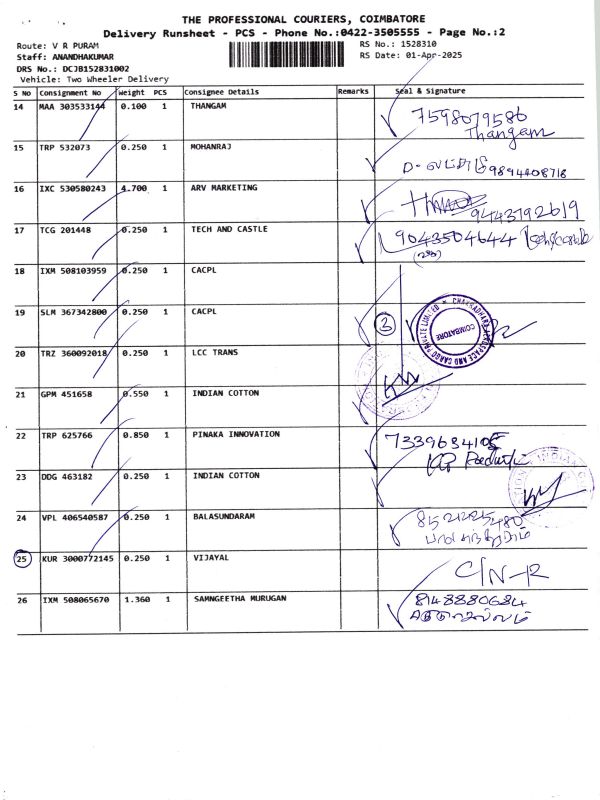 THE PROFESSIONAL COURIERS, COIMBATORE
Delivery Runsheet - PCS - Phone No.:0422-3505555 - Page No.:2
Route: V R PURAM
RS No.: 1528310
Staff: ANANDHAKUMAR
RS Date: 01-Apr-2025
DRS No.: DCJB152831002
Vehicle: Two Wheeler Delivery
S No Consignment No Weight PCS Consignee Details Remarks Seal & Signature
14 MAA 303533144 0.100 1 THANGAM 7598079586
Thangam
15 TRP 532073 0.250 1 MOHANRAJ 9894408718
16 IXC 530580243 4.700 1 ARV MARKETING 9443792619
17 TCG 201448 0.250 1 TECH AND CASTLE 9043504644
18 IXM 508103959 0.250 1 CACPL
19 SLM 367342800 0.250 1 CACPL 3
COIMBATORE
20 TRZ 360092018 0.250 1 LCC TRANS
21 GPM 451658 0.550 1 INDIAN COTTON
22 TRP 625766 0.850 1 PINAKA INNOVATION
23 DDG 463182 0.250 1 INDIAN COTTON
24 VPL 406540587 0.250 1 BALASUNDARAM
25 KUR 3000772145 0.250 1 VIJAYAL C/N-R
26 IXM 508065670 1.360 1 SAMNGEETHA MURUGAN 8148880684